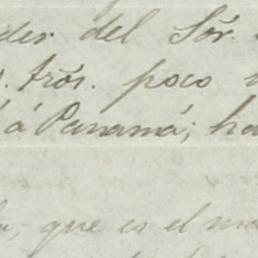 der del Sór.
trós. poco
á Panamá; ha
que es el